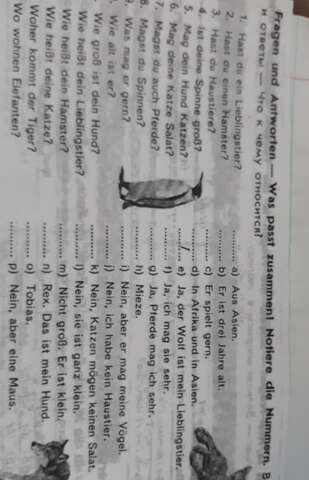 Fragen und Antworten — Was passt zusammen? Notiere die Nummern. В
и ответы — Что к чему относится?
1. Hast du ein Lieblingstier?
2. Hast du einen Hamster?
3. Hast du Haustiere?
4. Ist deine Spinne groß?
5. Mag dein Hund Katzen?
6. Mag deine Katze Salat?
7. Magst du auch Pferde?
8. Magst du Spinnen?
9. Was mag er gern?
Wie alt ist er?
Wie groß ist dein Hund?
Wie heißt dein Lieblingstier?
Wie heißt dein Hamster?
Wie heißt deine Katze?
Woher kommt der Tiger?
Wo wohnen Elefanten?
.......... a) Aus Asien.
.......... b) Er ist drei Jahre alt.
.......... c) Er spielt gern.
.......... d) In Afrika und in Asien.
....1.... e) Ja, der Wolf ist mein Lieblingstier.
.......... f) Ja, ich mag sie sehr.
.......... g) Ja, Pferde mag ich sehr.
.......... h) Mieze.
.......... i) Nein, aber er mag meine Vögel.
.......... j) Nein, ich habe kein Haustier.
.......... k) Nein, Katzen mögen keinen Salat.
.......... l) Nein, sie ist ganz klein.
.......... m) Nicht groß. Er ist klein.
.......... n) Rex. Das ist mein Hund.
.......... o) Tobias.
.......... p) Nein, aber eine Maus.